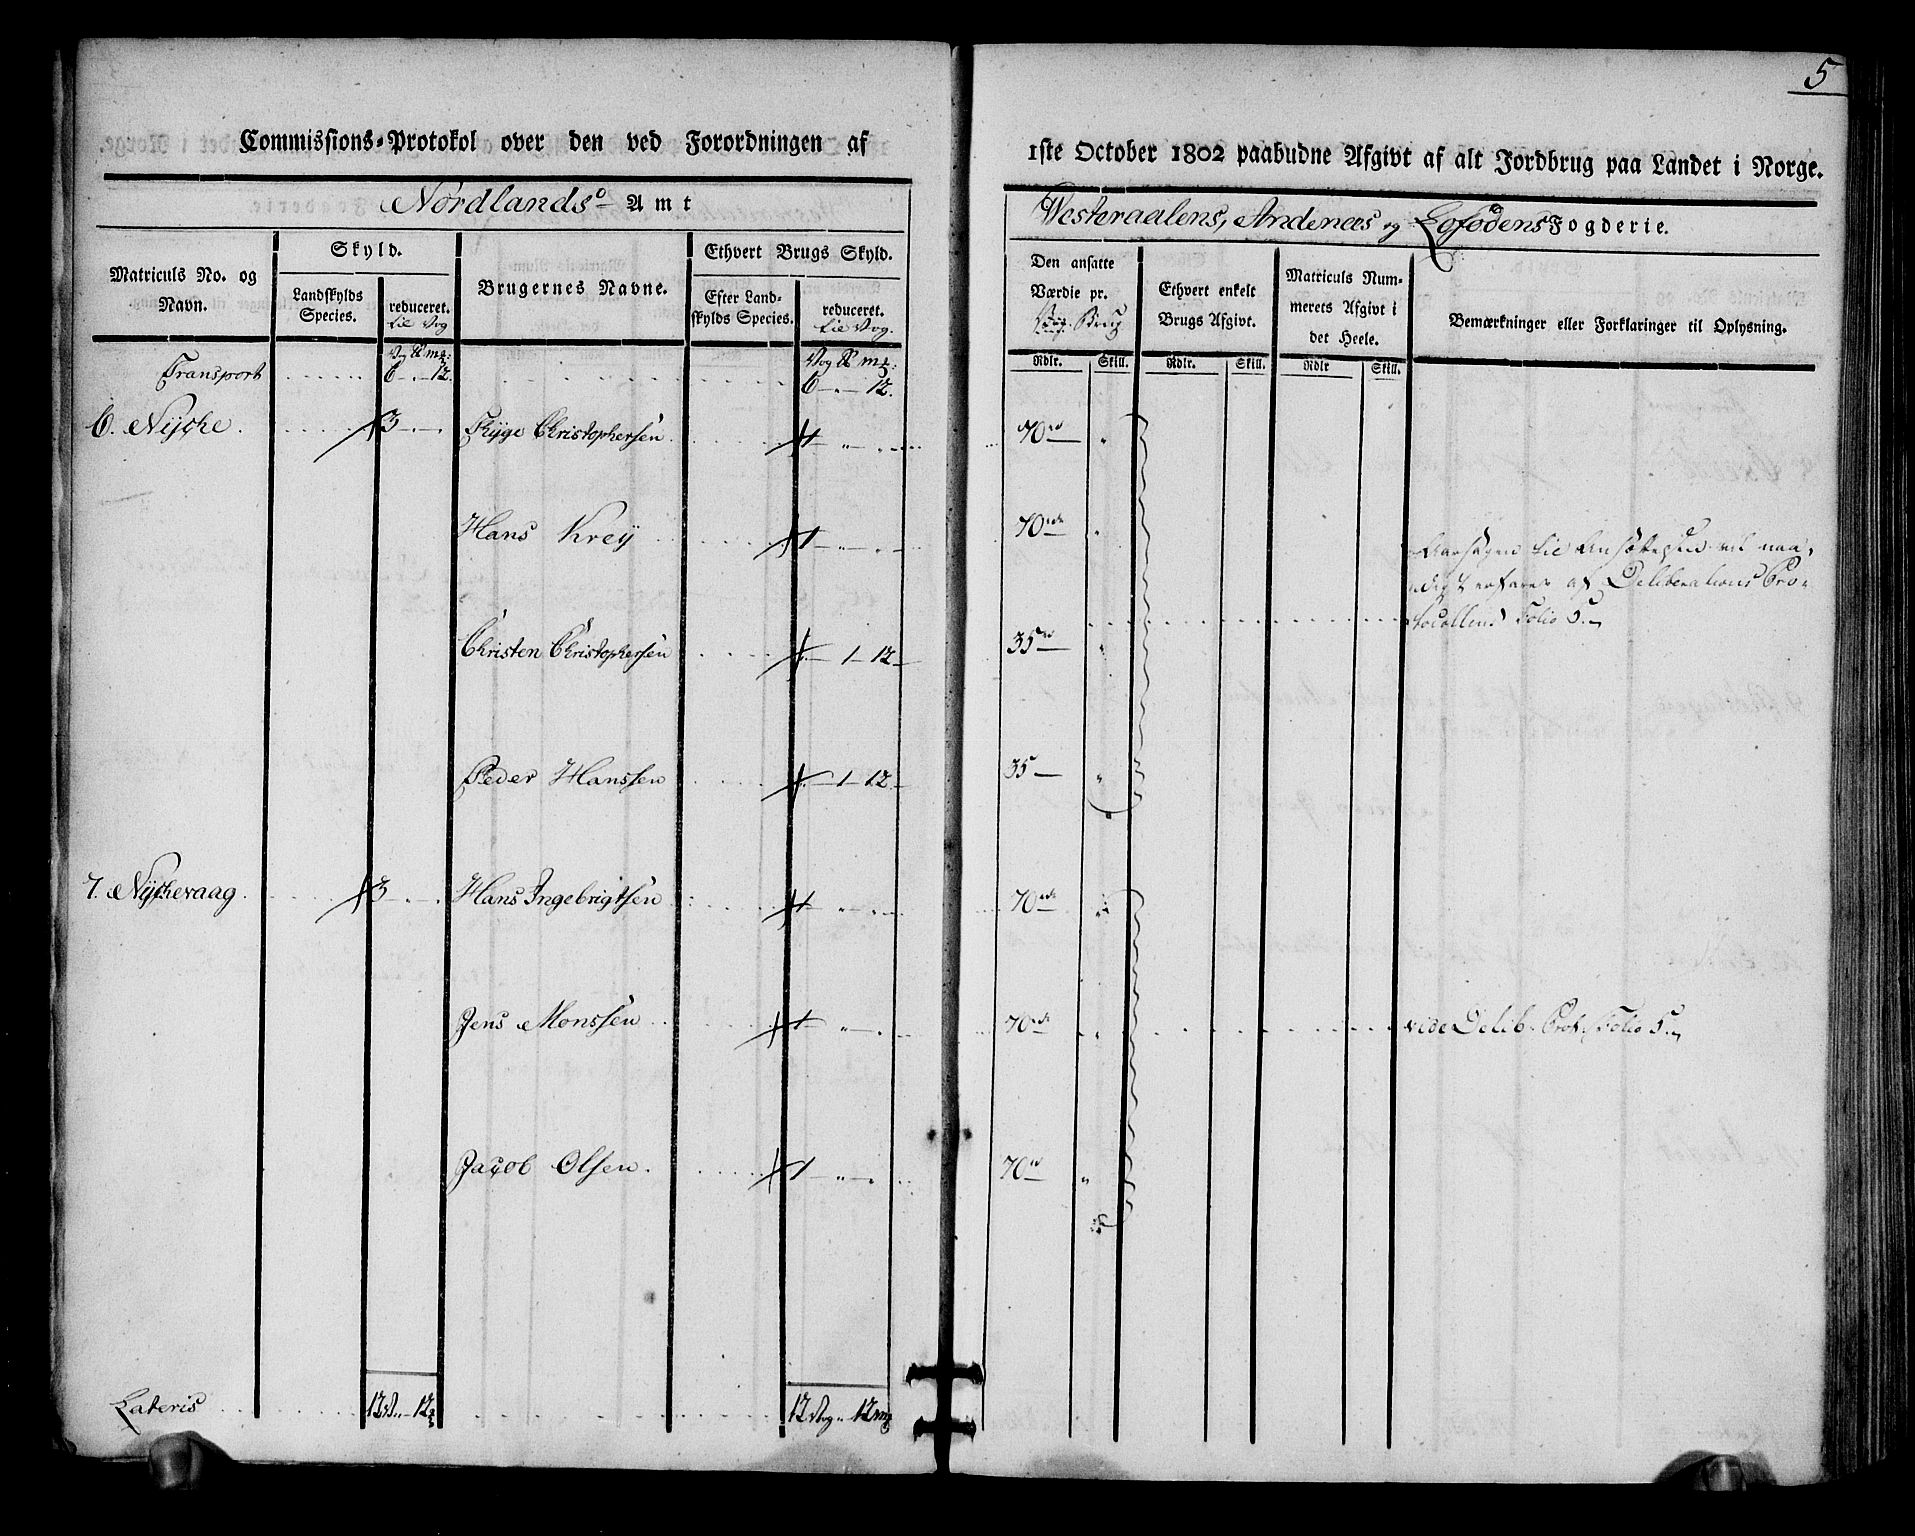 5
Commissions-Protokol over den ved Forordningen af
1ste October 1802 paabudne Afgivt af alt Jordbrug paa Landet i Norge.
Nordlands Amt
Westeraalens, Andenæs og Lofodens Fogderie.
Matriculs No. og Navn.
Skyld.
Landskylds Species.
reduceret. til Vog
Brugernes Navne.
Ethvert Brugs Skyld.
Efter Landskylds Species.
reduceret. til Vog.
Den ansatte Værdie pr. Brug
Ethvert enkelt Brugs Afgivt.
Matriculs Nummerets Afgivt i det Heele.
Bemærkninger eller Forklaringer til Oplysning.
Rdlr. Skill. Rdlr. Skill. Rdlr Skill.
Transport 6 - „ - 12. 6 - „ - 12.
6. Nyche. 3 - „ - Tyge Christophersen 1 - „ - „ 70 „
Hans Krey 1 - „ - „ 70 „
Aarsagen til Ansættelsen vil naa,
digst erfares af Deliberations Pro-
tocollens Folio 5.
Christen Christophersen - 1 - 12 - 35 „
Peder Hanssen - 1 - 12 - 35 „
7. Nychevaag 3 - „ - Hans Ingebrigtsen 1 - „ - „ 70 „
Jens Monssen 1 - „ - „ 70 „ vide Delib. Prot. Folio 5.
Jacob Olsen. 1 - „ - „ 70 „
Lateris 12 „ - 12 12 Vog „ 12 mg